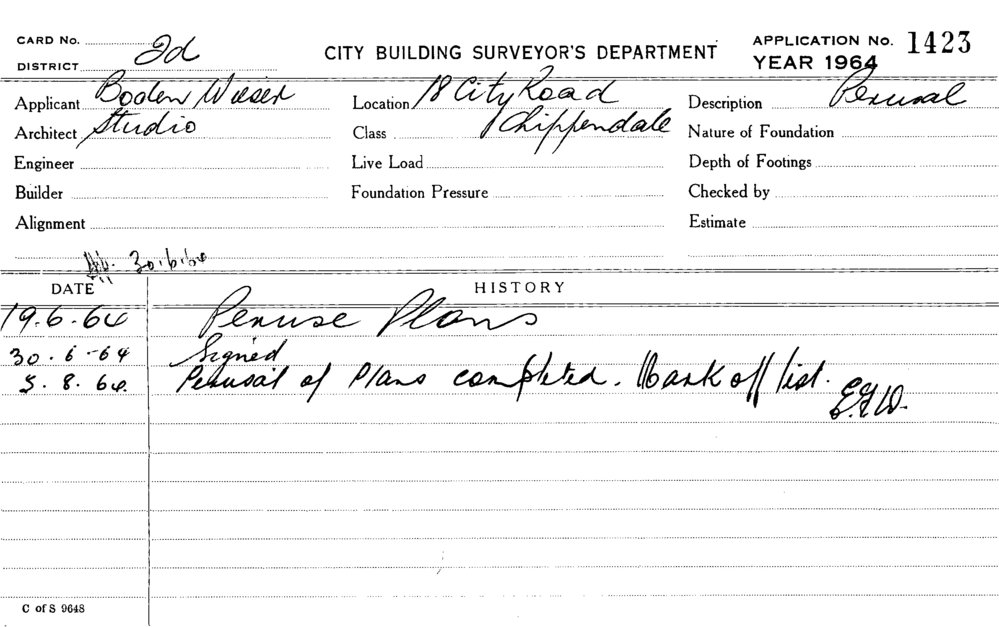 CARD No.
DISTRICT 2d
CITY BUILDING SURVEYOR'S DEPARTMENT
APPLICATION No. 1423
YEAR 1964
Applicant Boden Wieser
Location 18 City Road
Description Perusal
Architect Studio
Class Chippendale
Nature of Foundation
Engineer
Live Load
Depth of Footings
Builder
Foundation Pressure
Checked by
Alignment
Estimate
30.6.64
DATE HISTORY
19.6.64 Peruse Plans
30.6.64 Signed
5.8.64. Perusal of Plans completed. Mark off list.
E.G.W.
C of S 9648